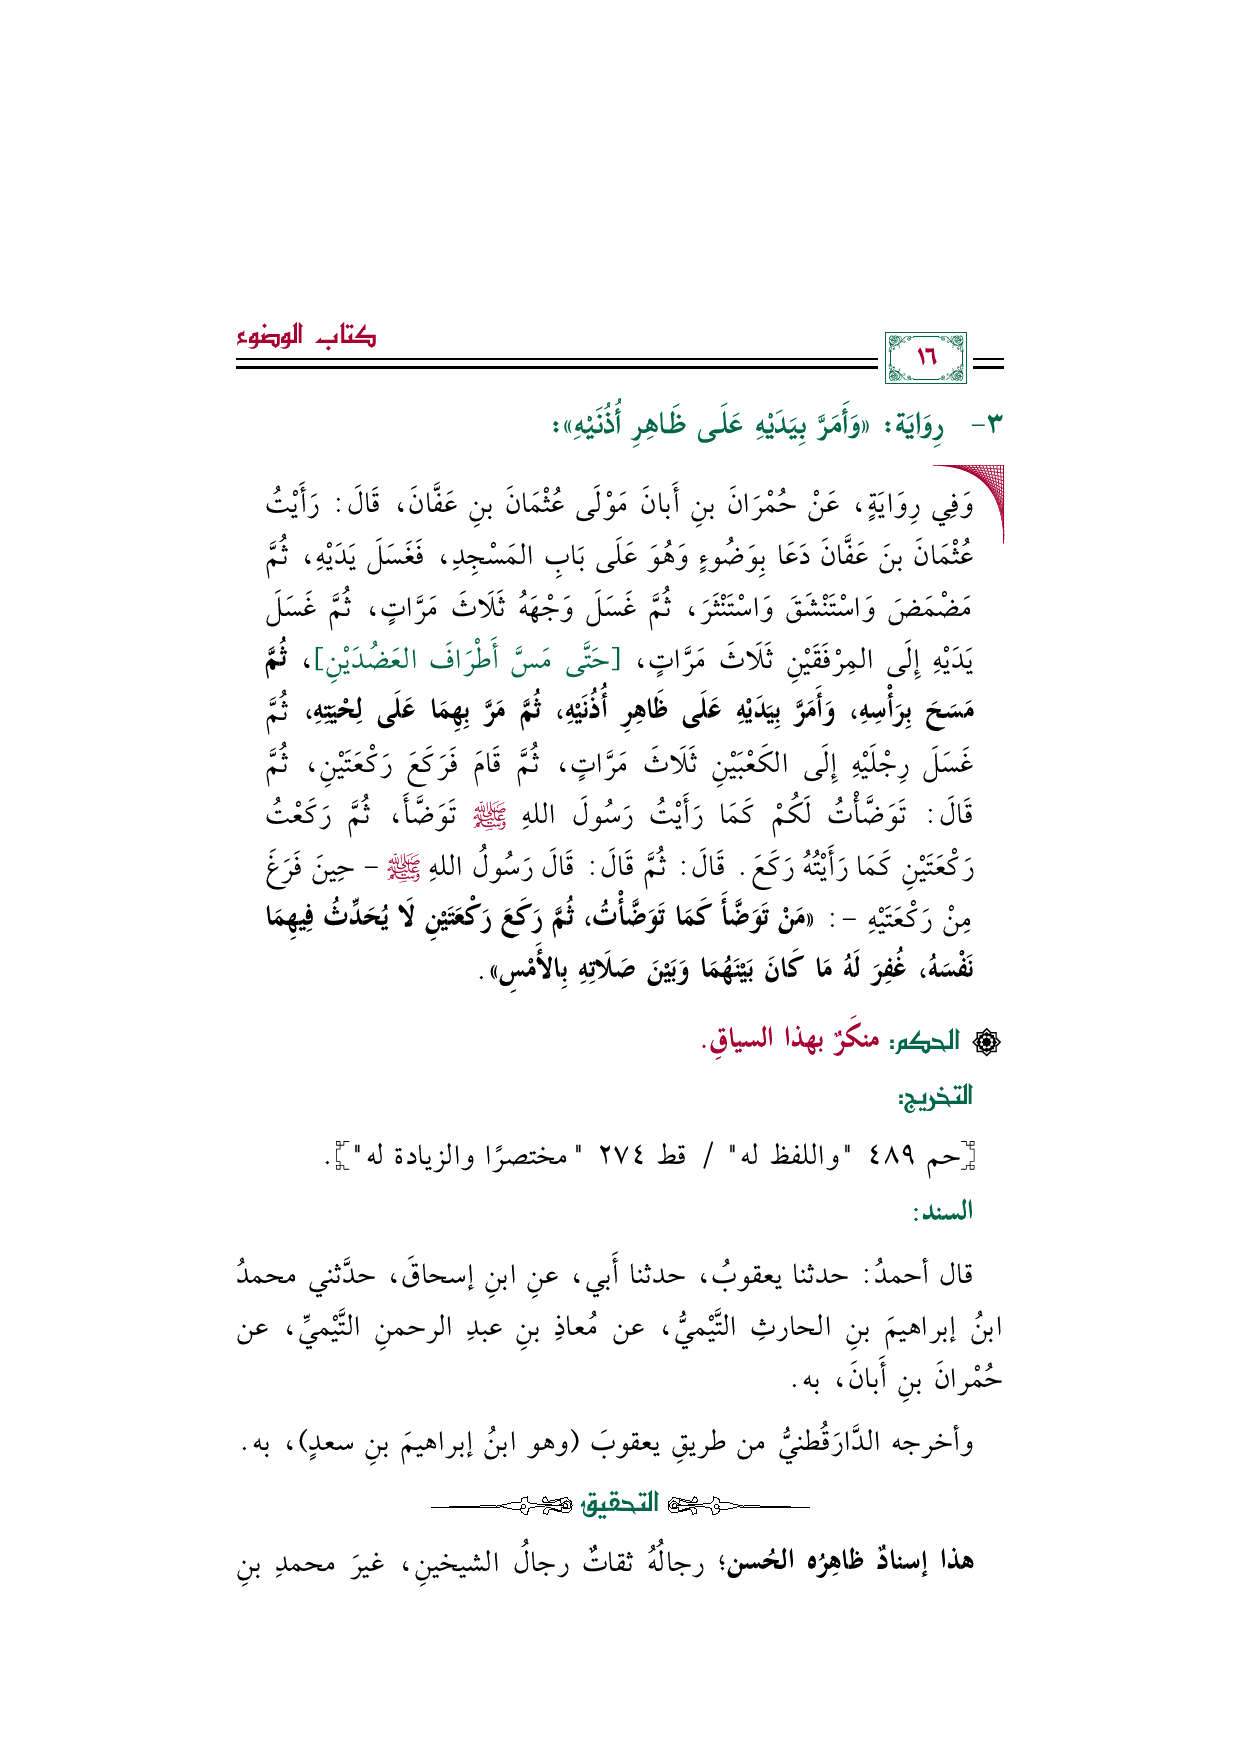 كتاب الوضوء
١٦
٣- رِوَايَة: «وَأَمَرَّ بِيَدَيْهِ عَلَى ظَاهِرِ أُذُنَيْهِ»:
وَفِي رِوَايَةٍ، عَنْ حُمْرَانَ بنِ أَبانَ مَوْلَى عُثْمَانَ بنِ عَفَّانَ، قَالَ: رَأَيْتُ
عُثْمَانَ بنَ عَفَّانَ دَعَا بِوَضُوءٍ وَهُوَ عَلَى بَابِ المَسْجِدِ، فَغَسَلَ يَدَيْهِ، ثُمَّ
مَضْمَضَ وَاسْتَنْشَقَ وَاسْتَنْثَرَ، ثُمَّ غَسَلَ وَجْهَهُ ثَلَاثَ مَرَّاتٍ، ثُمَّ غَسَلَ
يَدَيْهِ إِلَى المِرْفَقَيْنِ ثَلَاثَ مَرَّاتٍ، [حَتَّى مَسَّ أَطْرَافَ العَضُدَيْنِ]، ثُمَّ
مَسَحَ بِرَأْسِهِ، وَأَمَرَّ بِيَدَيْهِ عَلَى ظَاهِرِ أُذُنَيْهِ، ثُمَّ مَرَّ بِهِمَا عَلَى لِحْيَتِهِ، ثُمَّ
غَسَلَ رِجْلَيْهِ إِلَى الكَعْبَيْنِ ثَلَاثَ مَرَّاتٍ، ثُمَّ قَامَ فَرَكَعَ رَكْعَتَيْنِ، ثُمَّ
قَالَ: تَوَضَّأْتُ لَكُمْ كَمَا رَأَيْتُ رَسُولَ اللهِ ﷺ تَوَضَّأَ، ثُمَّ رَكَعْتُ
رَكْعَتَيْنِ كَمَا رَأَيْتُهُ رَكَعَ. قَالَ: ثُمَّ قَالَ: قَالَ رَسُولُ اللهِ ﷺ - حِينَ فَرَغَ
مِنْ رَكْعَتَيْهِ -: «مَنْ تَوَضَّأَ كَمَا تَوَضَّأْتُ، ثُمَّ رَكَعَ رَكْعَتَيْنِ لَا يُحَدِّثُ فِيهِمَا
نَفْسَهُ، غُفِرَ لَهُ مَا كَانَ بَيْنَهُمَا وَبَيْنَ صَلَاتِهِ بِالأَمْسِ».
الحكم: منكَرٌ بهذا السياقِ.
التخريج:
[حم ٤٨٩ "واللفظ له" / قط ٢٧٤ "مختصرًا والزيادة له"].
السند:
قال أحمدُ: حدثنا يعقوبُ، حدثنا أَبي، عنِ ابنِ إسحاقَ، حدَّثني محمدُ
ابنُ إبراهيمَ بنِ الحارثِ التَّيْميُّ، عن مُعاذِ بنِ عبدِ الرحمنِ التَّيْميِّ، عن
حُمْرانَ بنِ أَبانَ، به.
وأخرجه الدَّارَقُطنيُّ من طريقِ يعقوبَ (وهو ابنُ إبراهيمَ بنِ سعدٍ)، به.
التحقيق
هذا إسنادٌ ظاهِرُه الحُسن؛ رجالُهُ ثقاتٌ رجالُ الشيخينِ، غيرَ محمدِ بنِ